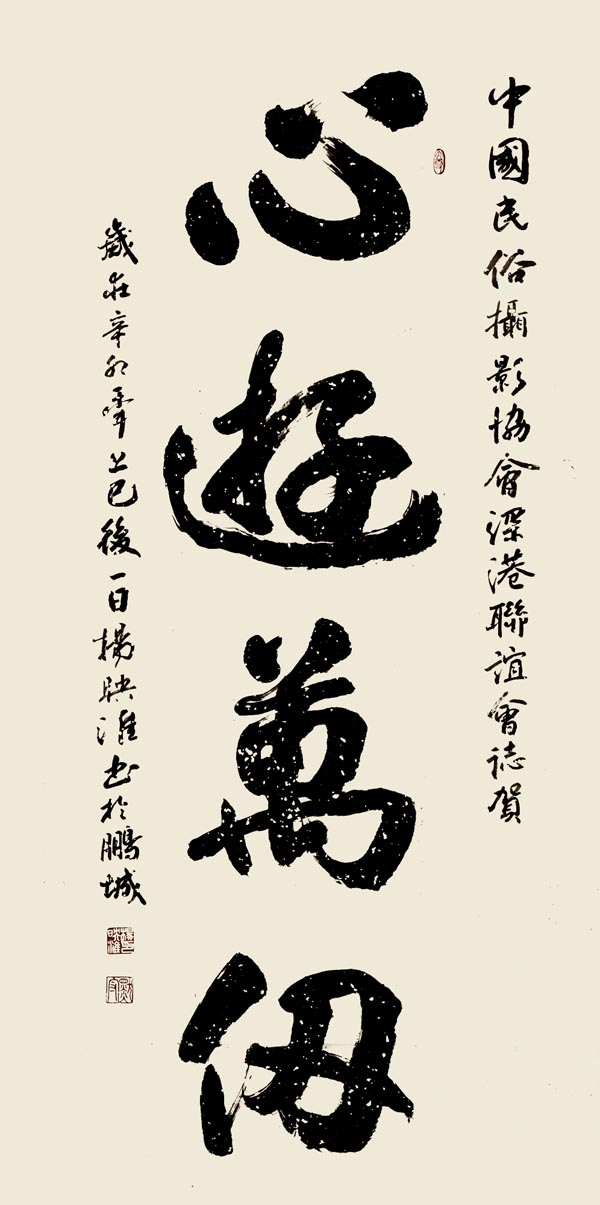 中國民俗攝影協會深港聯誼會誌賀
心遊萬仞
歲在辛卯年上巳後一日楊映淮書於鵬城